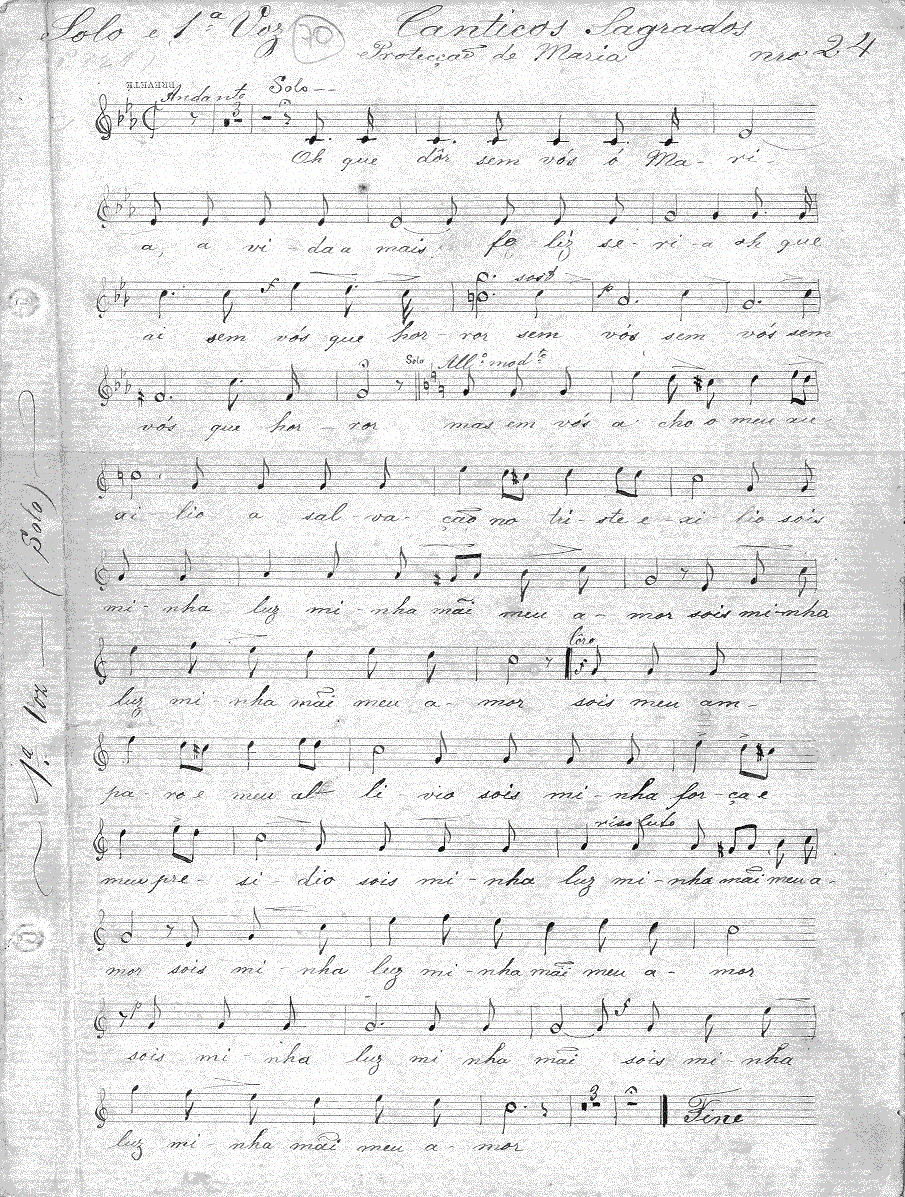 Solo e 1ª Voz
Canticos Sagrados
Protecção de Maria nro 24
BREVETÉ
Andante Solo
Oh que dôr sem vós ó Ma- ri-
a, a vi-da a mais fe liz se-ri-a oh que
sost
ai sem vós que hor-ror sem vós sem vós sem
Solo All.º mod.to
vós que hor-ror mas em vós a cho o meu au-
xi-lio a sal va-ção no tri-ste e-xi lio sois
mi-nha luz mi-nha mãi meu a-mor sois mi-nha
Côro
luz mi-nha mãi meu a-mor sois meu am-
pa-ro e meu al li-vio sois mi-nha for-ça e
risoluto
meu pre-si-dio sois mi-nha luz mi-nha mãi meu a-
mor sois mi-nha luz mi-nha mãi meu a-mor
sois mi-nha luz mi nha mãi sois mi-nha
luz mi-nha mãi meu a-mor
Fine
1ª Voz (Solo)